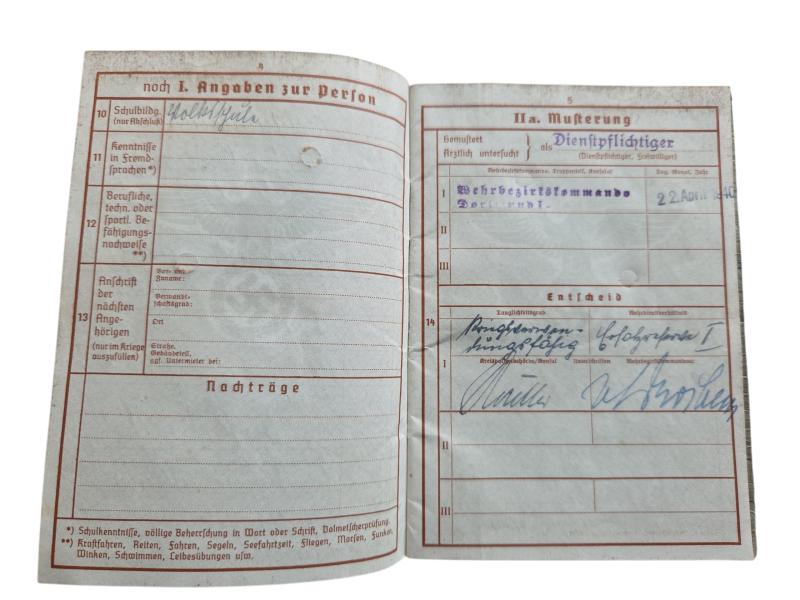 4
noch I. Angaben zur Person
10 Schulbildg. (nur Abschluß)
Volksschule
11 Kenntnisse in Fremdsprachen *)
12 Berufliche, techn. oder sportl. Befähigungsnachweise **)
13 Anschrift der nächsten Angehörigen (nur im Kriege auszufüllen)
Vor- und Zuname:
Verwandtschaftsgrad:
Ort
Straße, Gebäudeteil, ggf. Untermieter bei:
Nachträge
*) Schulkenntnisse, völlige Beherrschung in Wort oder Schrift, Dolmetscherprüfung.
**) Kraftfahren, Reiten, Fahren, Segeln, Seefahrtzeit, Fliegen, Morsen, Funken,
Winken, Schwimmen, Leibesübungen usw.
5
IIa. Musterung
Gemustert
Ärztlich untersucht
als Dienstpflichtiger
(Dienstpflichtiger, Freiwilliger)
Wehrbezirkskommando, Truppenteil, Konsulat
Tag, Monat, Jahr
I
Wehrbezirkskommando
Dortmund I
22. April 1940
II
III
Entscheid
14
Tauglichkeitsgrad
Wehrdienstverhältnis
Kriegsverwen-
dungsfähig
Ersatzreserve I
I
Kreispolizeibehörde/Konsul
Unterschriften
Wehrbezirkskommandeur
II
III